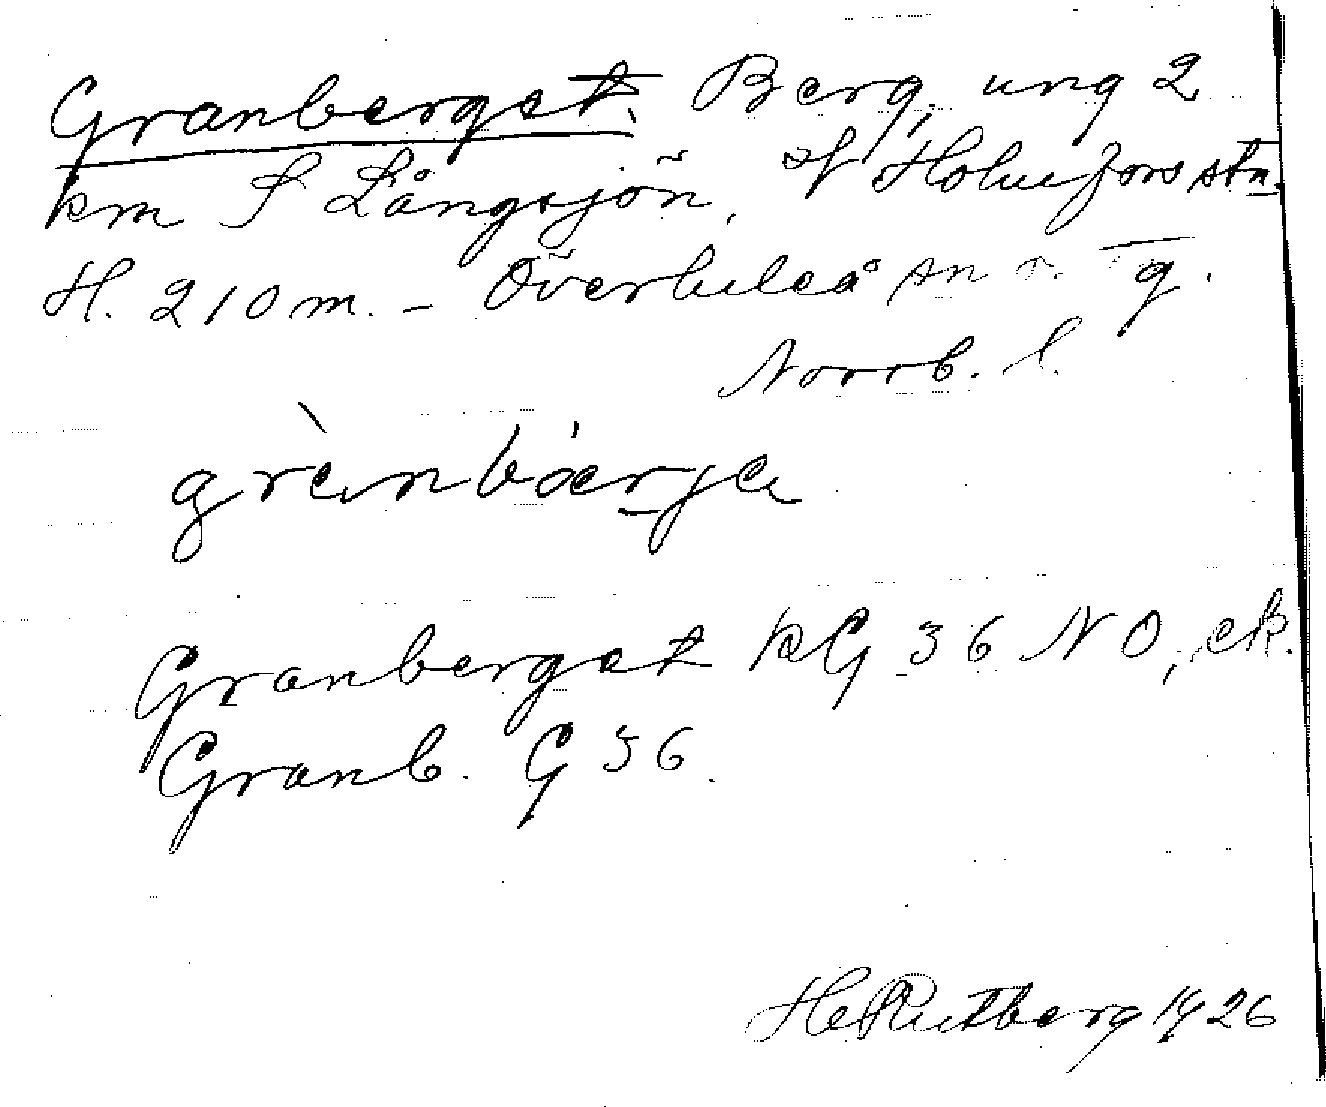 Granberget. Berg, ung 2
km S Långsjön, N Holmfors stn.
H. 210 m. - Överluleå sn
Norrb. l.
grànbærje
Granberget kG 36 NO, ek.
Granb. G 36.
H Rutberg 1926